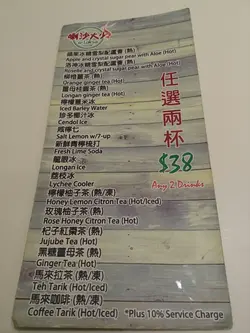 喇沙火
蘋果冰糖雪梨配蘆薈 (熱)
Apple and crystal sugar pear with Aloe (Hot)
洛神冰糖雪梨配蘆薈 (熱)
Roselle and crystal sugar pear with Aloe (Hot)
柳橙薑茶 (熱)
Orange ginger tea (Hot)
薑母桂圓茶 (熱)
Longan ginger tea (Hot)
檸檬薏米冰
Iced Barley Water
珍多椰汁冰
Cendol Ice
咸檸七
Salt Lemon w/7-up
新鮮青檸梳打
Fresh Lime Soda
龍眼冰
Longan ice
荔枝冰
Lychee Cooler
檸檬柚子茶 (熱/凍)
Honey Lemon Citron Tea (Hot/Iced)
玫瑰柚子茶 (熱)
Rose Honey Citron Tea (Hot)
杞子紅棗茶 (熱)
Jujube Tea (Hot)
黑糖薑母茶 (熱)
Ginger Tea (Hot)
馬來拉茶 (熱/凍)
Teh Tarik (Hot/Iced)
馬來咖啡 (熱/凍)
Coffee Tarik (Hot/Iced)
任選兩杯
$38
Any 2 Drinks
*Plus 10% Service Charge